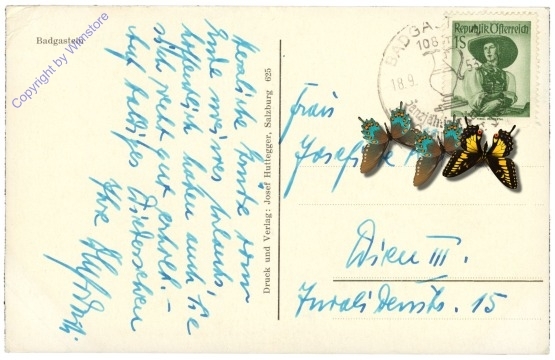 Badgastein
Copyright by Wanstore
Herzliche Grüße vom
Ende meines Urlaubs.
Hoffentlich haben auch Sie
sich recht gut erholt. –
Auf baldiges Wiedersehen
Ihre
Druck und Verlag: Josef Huttegger, Salzburg 625
BADGA
108
18.9.
Republik Österreich
1S
Frau
Josefine
Wien III.
Invalidenstr. 15